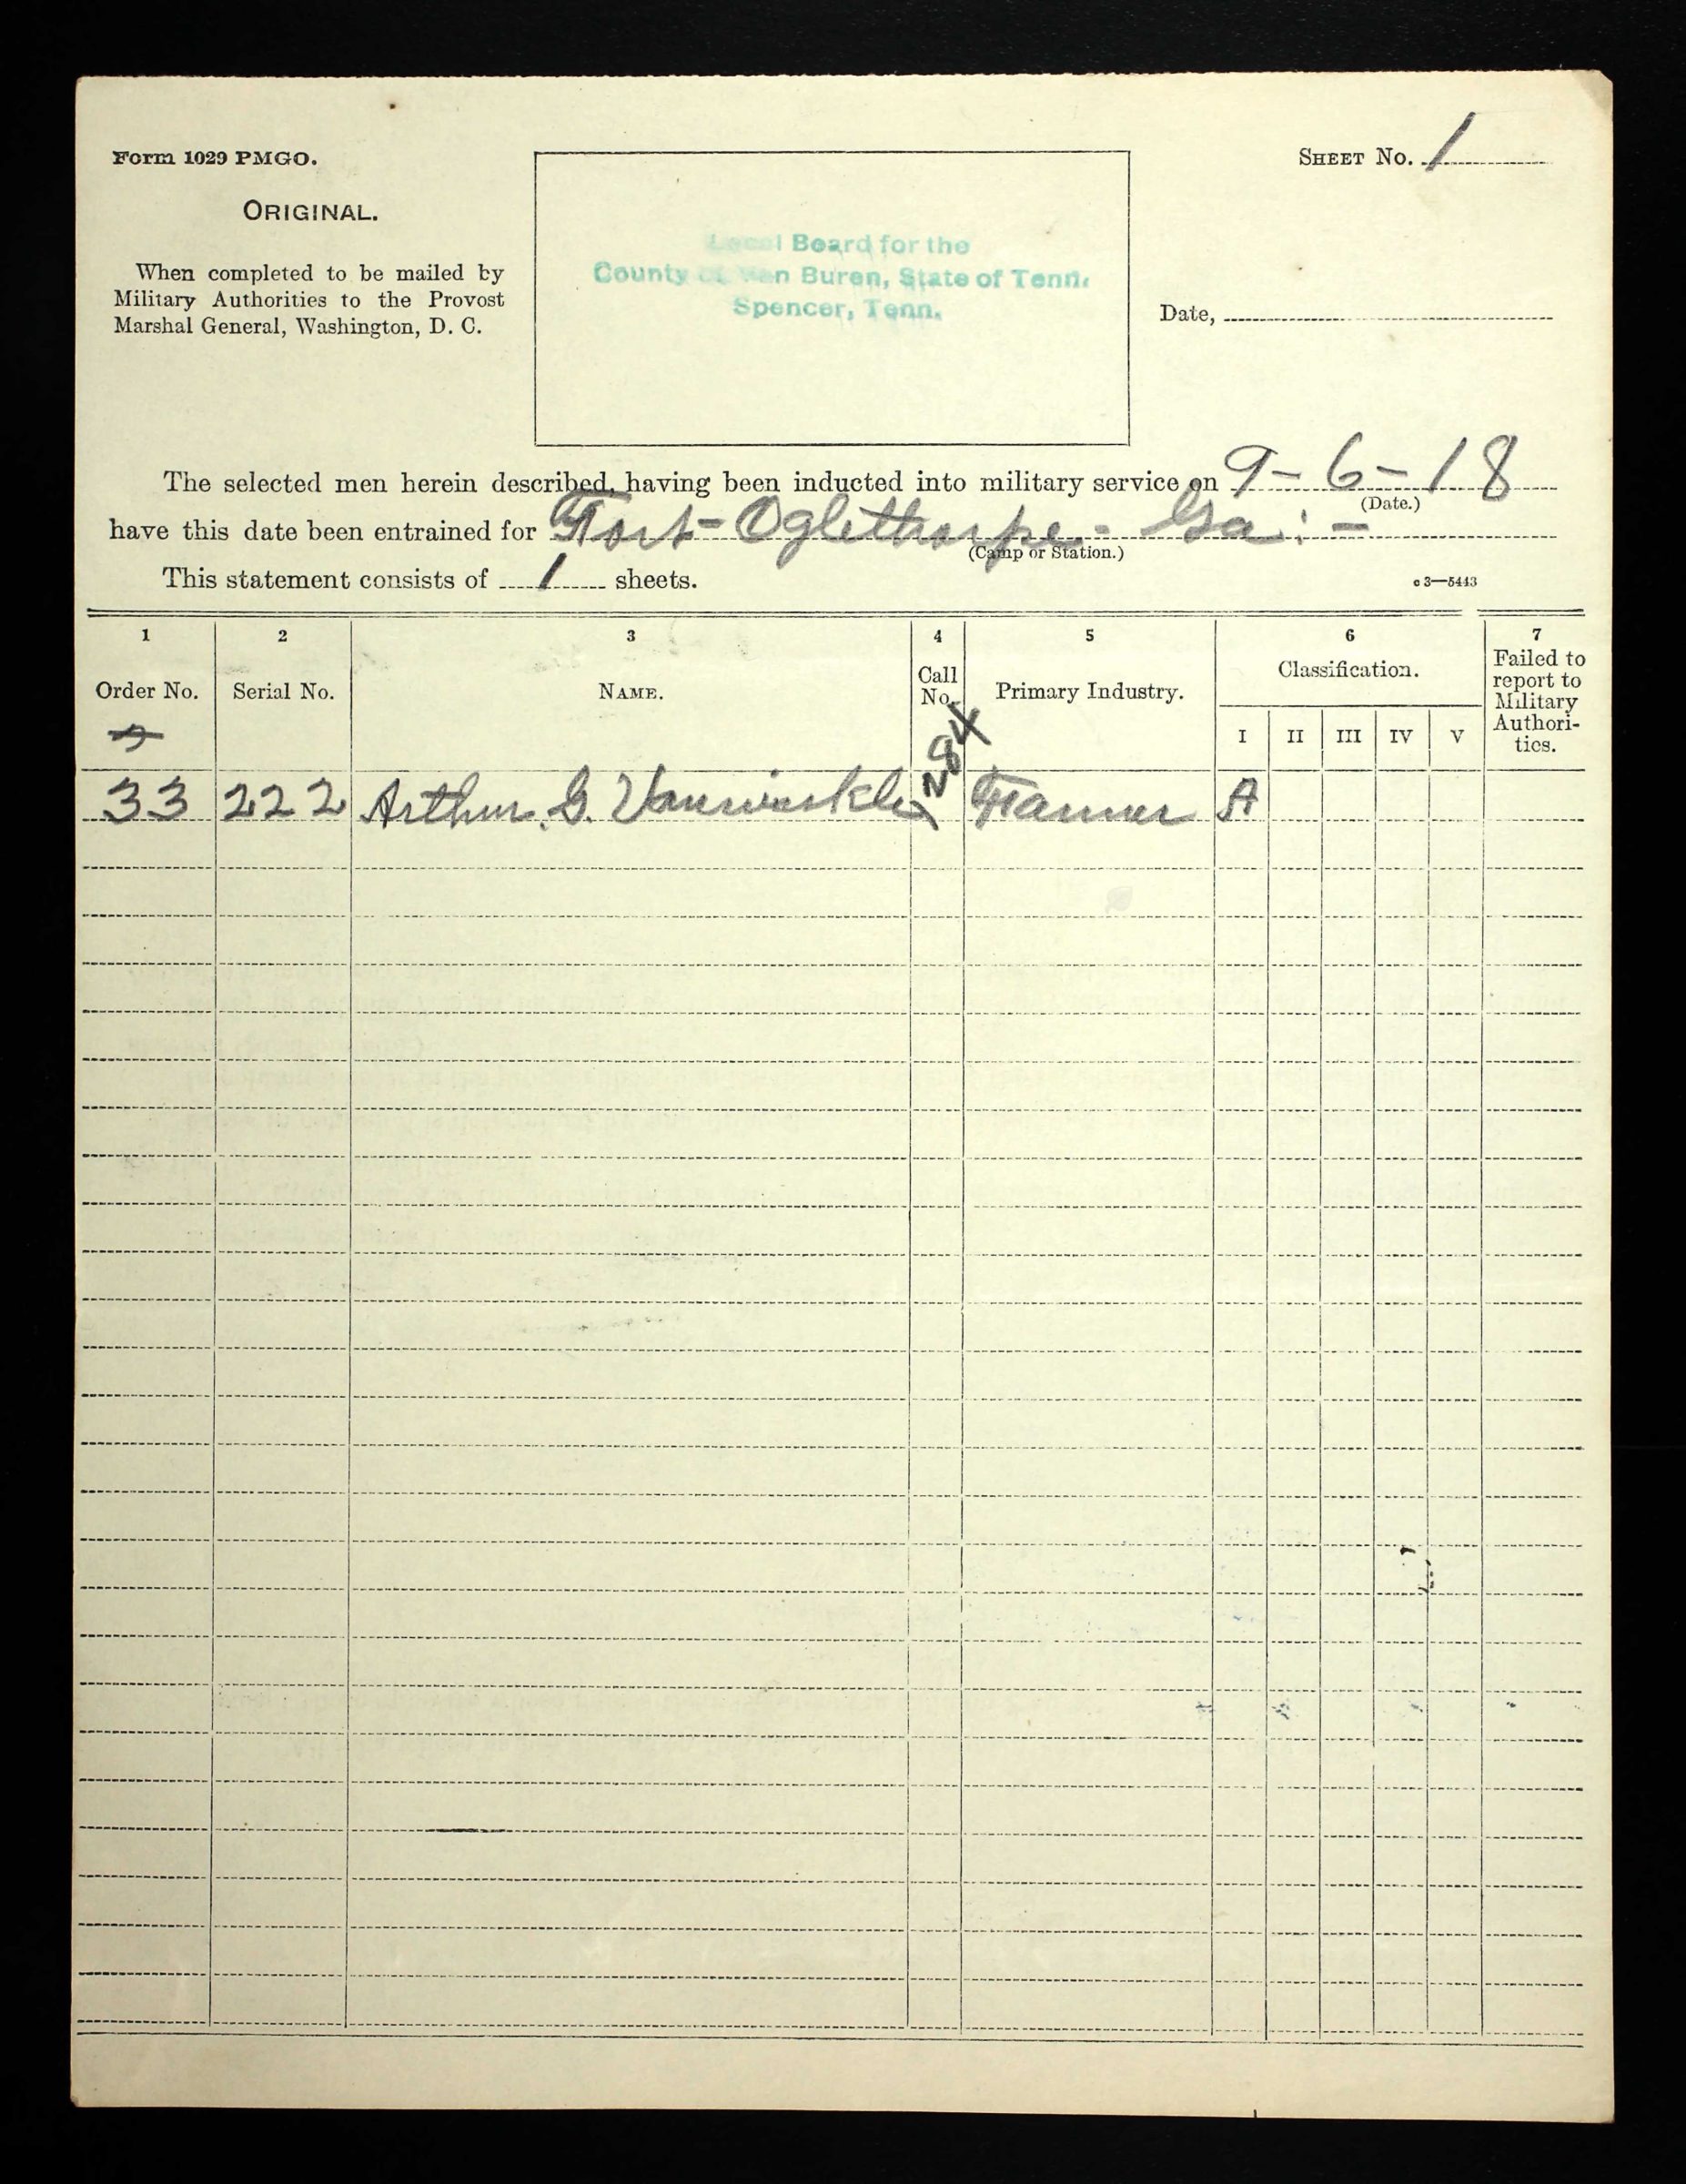 Form 1029 PMGO.
ORIGINAL.
When completed to be mailed by
Military Authorities to the Provost
Marshal General, Washington, D. C.
Local Board for the
County of Van Buren, State of Tenn.
Spencer, Tenn.
SHEET No. 1
Date,
The selected men herein described, having been inducted into military service on 9-6-18
(Date.)
have this date been entrained for Fort-Oglethorpe- Ga:-
(Camp or Station.)
This statement consists of 1 sheets.
c3—5443
1 2 3 4 5 6 7
Order No. Serial No. NAME. Call No. Primary Industry. Classification. Failed to report to Military Authorities.
I II III IV V
33 222 Arthur. G. Vanwinkle 284 Farmer A